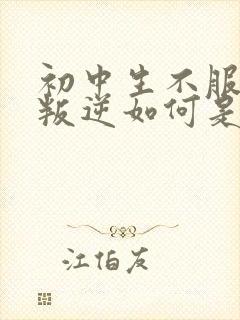 初中生不服
叛逆如何是
江伯友